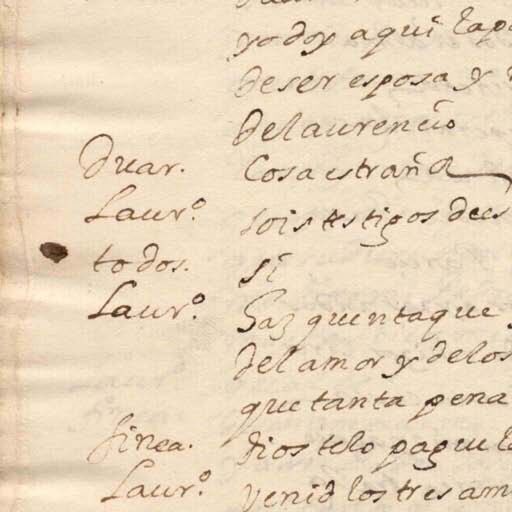 yo doy aqui la pa
de ser esposa y
de laurencio
Duar. Cosa estraña
Laur.º sois testigos de es
todos. si
Laur.º
del amor y de los
que tanta pena
finea. dios te lo pague la
Laur.º venid los tres am